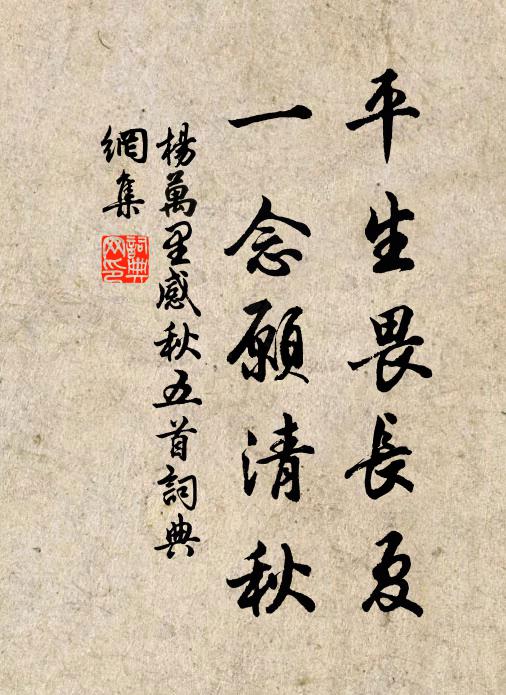 平生畏長夏
一念願清秋
楊萬里感秋五首詞典
網集
詞典
网印